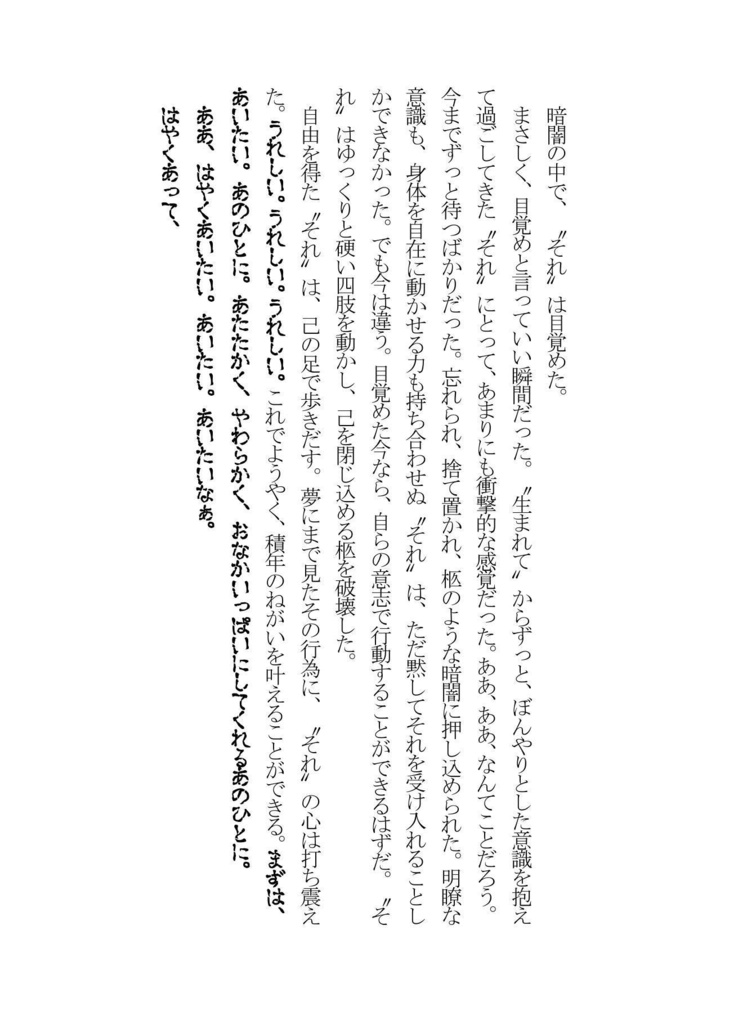 暗闇の中で、〝それ〟は目覚めた。
まさしく、目覚めと言っていい瞬間だった。〝生まれて〟からずっと、ぼんやりとした意識を抱え
て過ごしてきた〝それ〟にとって、あまりにも衝撃的な感覚だった。ああ、ああ、なんてことだろう。
今までずっと待つばかりだった。忘れられ、捨て置かれ、柩のような暗闇に押し込められた。明瞭な
意識も、身体を自在に動かせる力も持ち合わせぬ〝それ〟は、ただ黙してそれを受け入れることし
かできなかった。でも今は違う。目覚めた今なら、自らの意志で行動することができるはずだ。〝そ
れ〟はゆっくりと硬い四肢を動かし、己を閉じ込める柩を破壊した。
自由を得た〝それ〟は、己の足で歩きだす。夢にまで見たその行為に、〝それ〟の心は打ち震え
た。うれしい。うれしい。うれしい。これでようやく、積年のねがいを叶えることができる。まずは、
あいたい。あのひとに。あたたかく、やわらかく、おなかいっぱいにしてくれるあのひとに。
ああ、はやくあいたい。あいたい。あいたいなぁ。
はやくあって、